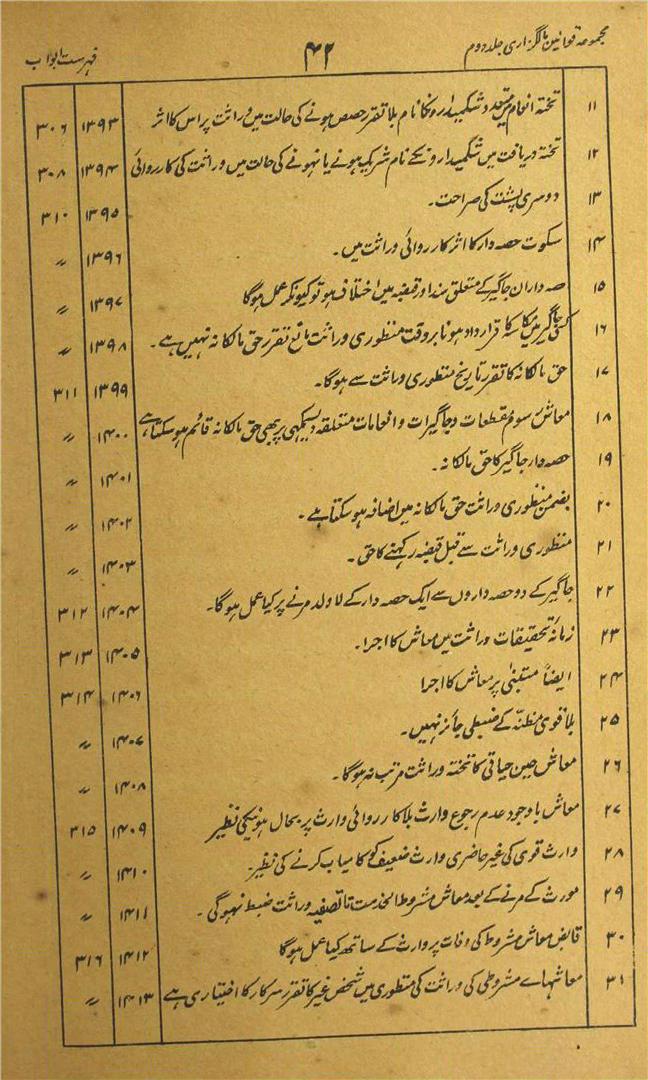 مجموعہ قوانین مالگزاری جلد دوم ۴۲ فہرست ابواب
۱۱ تختہ انعام میں متعدد شکمیداروں کا نام بلا تقرر حصص ہونے کی حالت میں وراثت پر اس کا اثر ۱۳۹۳ ۳۰۶
۱۲ تختہ دریافت میں شکمیدارونکے نام شریک ہونے یا نہونے کی حالت میں وراثت کی کارروائی ۱۳۹۴ ۳۰۸
۱۳ دوسری پشت کی صراحت۔ ۱۳۹۵ ۳۱۰
۱۴ سکوت حصہ دار کا اثر کارروائی وراثت میں۔ ۱۳۹۶ 〃
۱۵ حصہ داران جاگیر کے متعلق سند اور قبضہ میں اختلاف ہو تو کیونکر عمل ہوگا ۱۳۹۷ 〃
۱۶ کسی جاگیر میں تکاسہ کا قرارداد ہونا بروقت منظوری وراثت مانع تقرر حق مالکانہ نہیں ہے۔ ۱۳۹۸ 〃
۱۷ حق مالکانہ کا تقرر تاریخ منظوری وراثت سے ہوگا۔ ۱۳۹۹ ۳۱۱
۱۸ معاش رسوم مقطعات و جاگیرات و انعامات متعلقہ دیسمکھی پر بھی حق مالکانہ قائم ہوسکتا ہے ۱۴۰۰ 〃
۱۹ حصہ دار جاگیر کا حق مالکانہ۔ ۱۴۰۱ 〃
۲۰ بضمن منظوری وراثت حق مالکانہ میں اضافہ ہوسکتا ہے۔ ۱۴۰۲ 〃
۲۱ منظوری وراثت سے قبل قبضہ رکھنے کا حق۔ ۱۴۰۳ 〃
۲۲ جاگیر کے دو حصہ داروں سے ایک حصہ دار کے لاولد مرنے پر کیا عمل ہوگا۔ ۱۴۰۴ ۳۱۲
۲۳ زمانۂ تحقیقات وراثت میں معاش کا اجرا۔ ۱۴۰۵ ۳۱۳
۲۴ ایضاً متبنیٰ پر معاش کا اجرا ۱۴۰۶ ۳۱۴
۲۵ بلا قوی مظنّہ کے ضبطی جائز نہیں۔ ۱۴۰۷ 〃
۲۶ معاش حین حیاتی کا تختہ وراثت مرتب نہ ہوگا۔ ۱۴۰۸ 〃
۲۷ معاش باوجود عدم رجوع وارث بلا کارروائی وارث پر بحال ہونیکی نظیر ۱۴۰۹ ۳۱۵
۲۸ وارث قوی کی غیر حاضری وارث ضعیف کو کامیاب کرنے کی نظیر۔ ۱۴۱۰ 〃
۲۹ مورث کے مرنے کے بعد معاش مشروط الخدمت تا تصفیہ وراثت ضبط نہوگی۔ ۱۴۱۱ 〃
۳۰ قابض معاش مشروط کی وفات پر وارث کے ساتھ کیا عمل ہوگا ۱۴۱۲ ۳۱۶
۳۱ معاشہاے مشروطی کی وراثت کی منظوری میں شخص غیر کا تقرر سرکار کا اختیاری ہے ۱۴۱۳ 〃